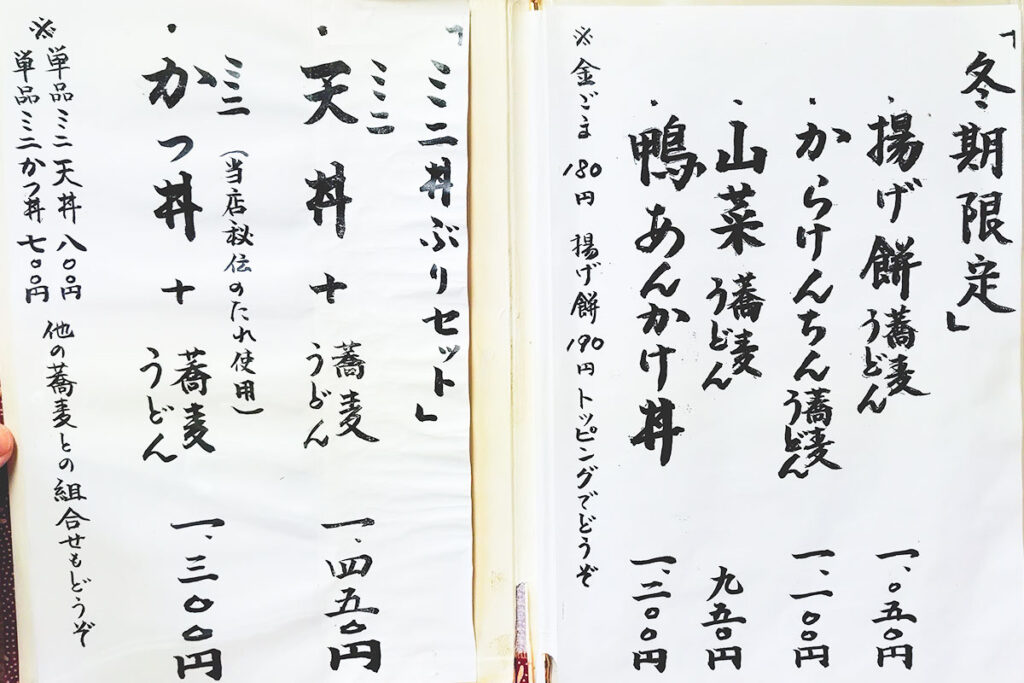 「冬期限定」
・揚げ餅蕎麦うどん 一、〇五〇円
・からけんちん蕎麦うどん 一、一〇〇円
・山菜蕎麦うどん 九五〇円
・鴨あんかけ丼 一、二〇〇円
※金ごま 180円 揚げ餅 190円トッピングでどうぞ
「ミニ丼ぶりセット」
・ミニ天丼+蕎麦うどん 一、四五〇円
(当店秘伝のたれ使用)
・ミニかつ丼+蕎麦うどん 一、三〇〇円
※単品ミニ天丼八〇〇円
単品ミニかつ丼七〇〇円
他の蕎麦との組合せもどうぞ